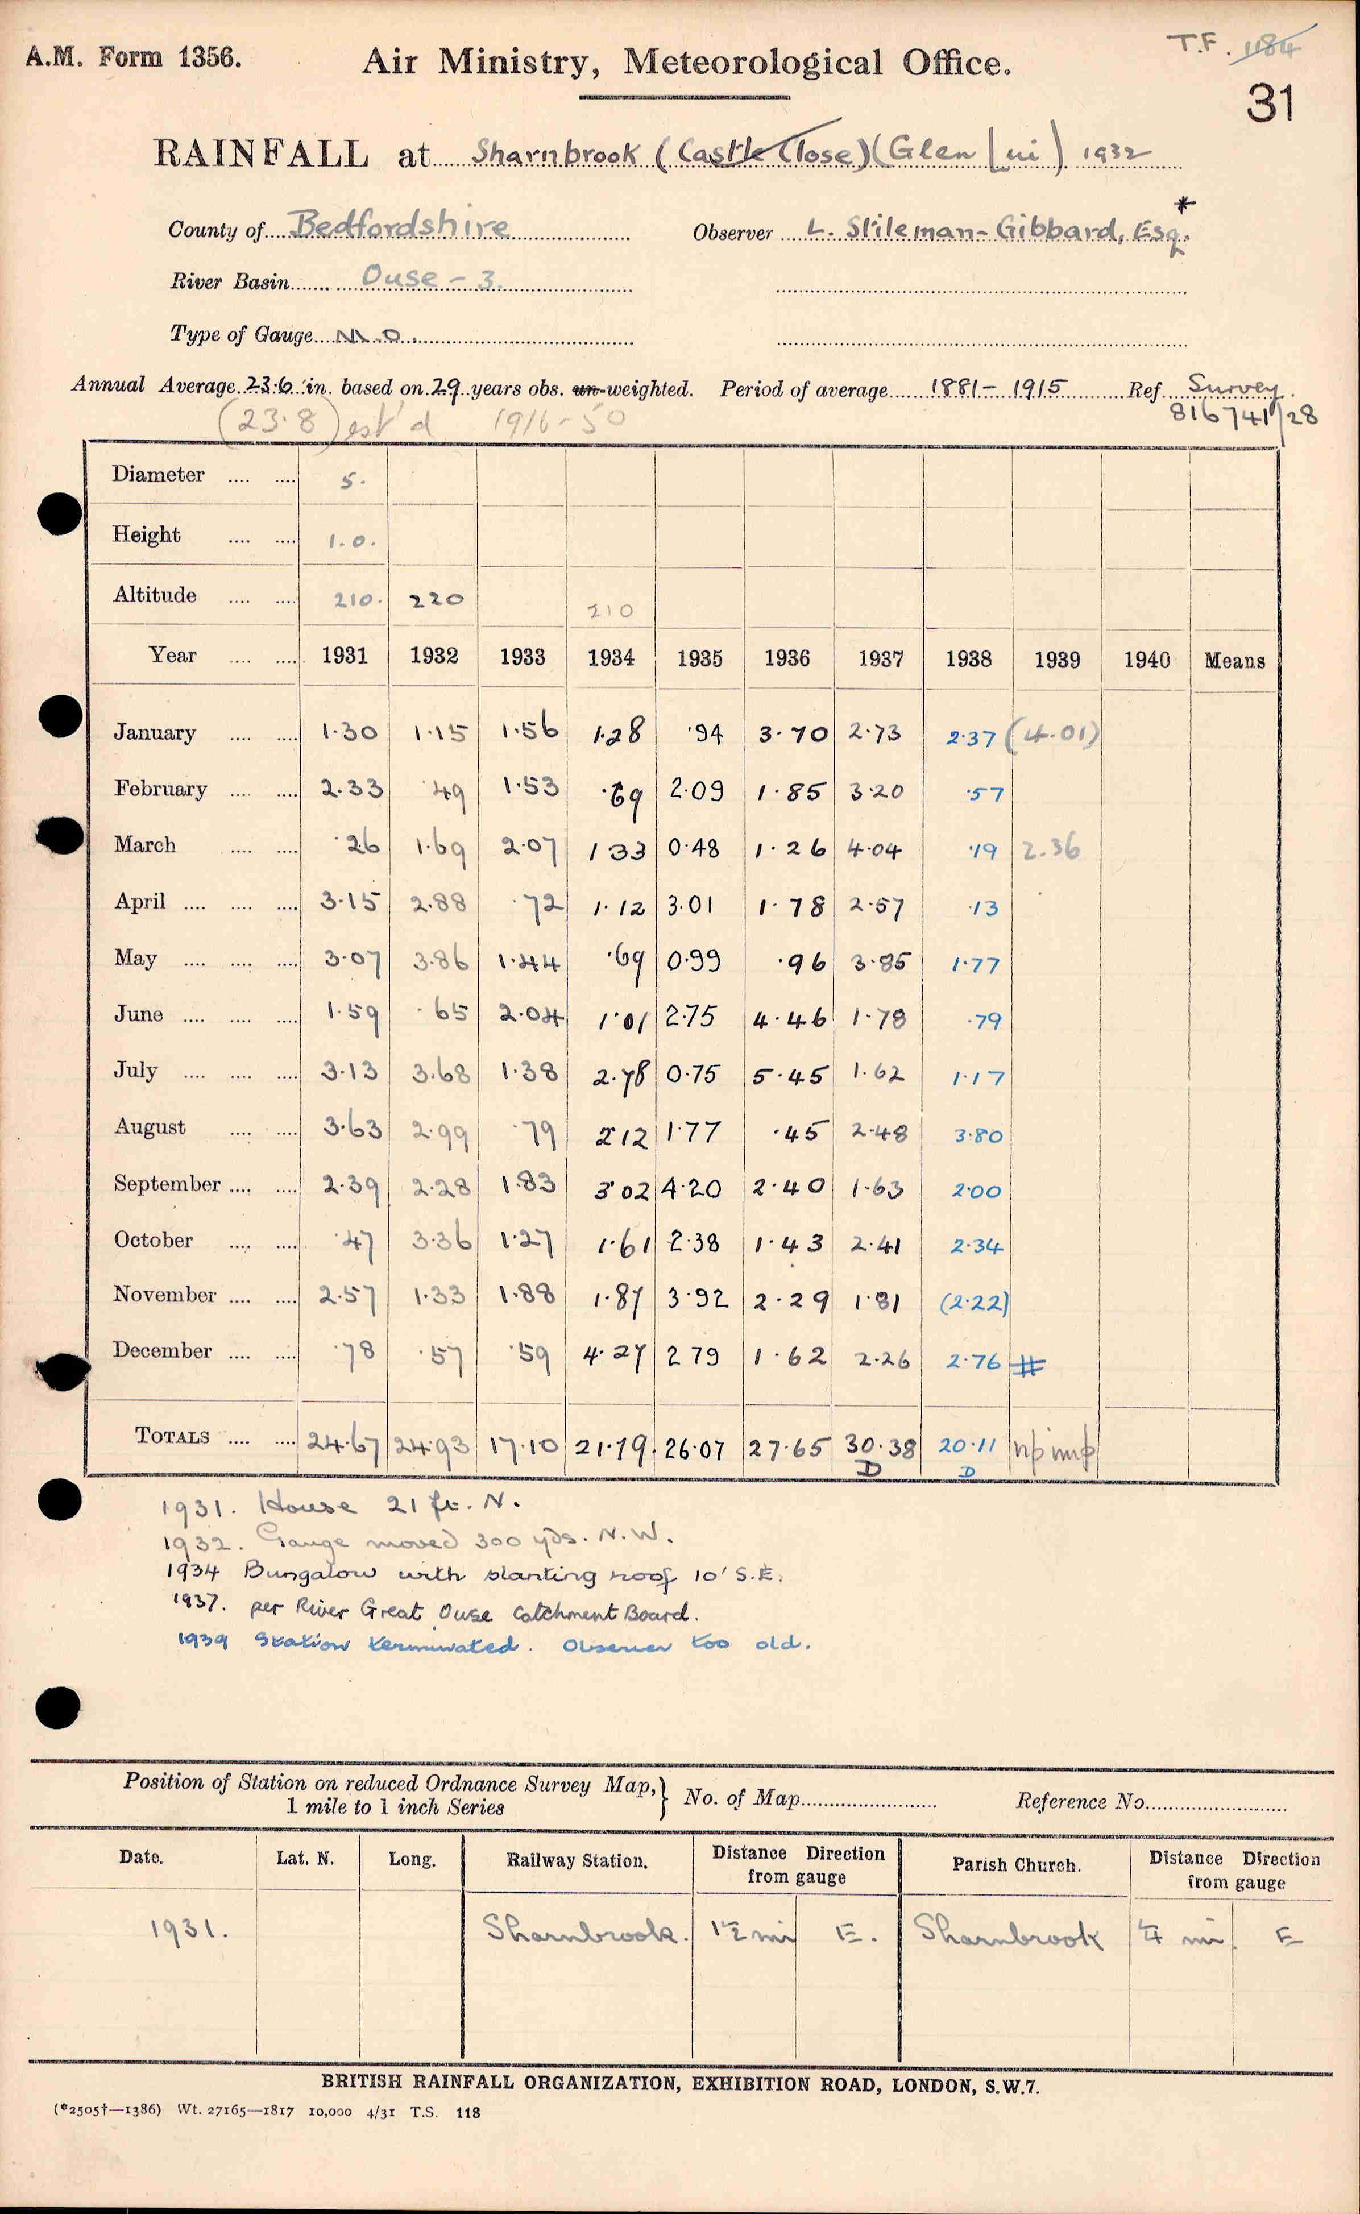 A.M. Form 1356.
Air Ministry, Meteorological Office.
T.F. 1184
31
RAINFALL at Sharnbrook (Castle Close) (Glen Lui) 1932
County of Bedfordshire Observer L. Stileman-Gibbard, Esq. *
River Basin Ouse - 3.
Type of Gauge M.O.
Annual Average 23.6 in. based on 29 years obs. un-weighted. Period of average 1881-1915 Ref Survey
(23.8) est'd 1916-50 816741/28
Diameter 5.
Height 1.0.
Altitude 210. 220 210
Year 1931 1932 1933 1934 1935 1936 1937 1938 1939 1940 Means
January 1.30 1.15 1.56 1.28 .94 3.70 2.73 2.37 (4.01)
February 2.33 .49 1.53 .69 2.09 1.85 3.20 .57
March .26 1.69 2.07 1 33 0.48 1.26 4.04 .19 2.36
April 3.15 2.88 .72 1.12 3.01 1.78 2.57 .13
May 3.07 3.86 1.44 .69 0.99 .96 3.85 1.77
June 1.59 .65 2.04 1.01 2.75 4.46 1.78 .79
July 3.13 3.68 1.38 2.78 0.75 5.45 1.62 1.17
August 3.63 2.99 .79 2.12 1.77 .45 2.48 3.80
September 2.39 2.28 1.83 3.02 4.20 2.40 1.63 2.00
October .47 3.36 1.27 1.61 2.38 1.43 2.41 2.34
November 2.57 1.33 1.88 1.87 3.92 2.29 1.81 (2.22)
December .78 .57 .59 4.27 2 79 1.62 2.26 2.76 #
TOTALS 24.67 24.93 17.10 21.79 26.07 27.65 30.38 20.11
D D
1931. House 21 ft. N.
1932. Gauge moved 300 yds. N.W.
1934 Bungalow with slanting roof 10' S.E.
1937. per River Great Ouse Catchment Board.
1939 Station terminated. Observer too old.
Position of Station on reduced Ordnance Survey Map, } No. of Map Reference No.
1 mile to 1 inch Series
Date. Lat. N. Long. Railway Station. Distance Direction from gauge Parish Church. Distance Direction from gauge
1931. Sharnbrook. 1½ mi E. Sharnbrook ¼ mi. E
BRITISH RAINFALL ORGANIZATION, EXHIBITION ROAD, LONDON, S.W.7.
(*2505†—1386) Wt. 27165—1817 10,000 4/31 T.S. 118